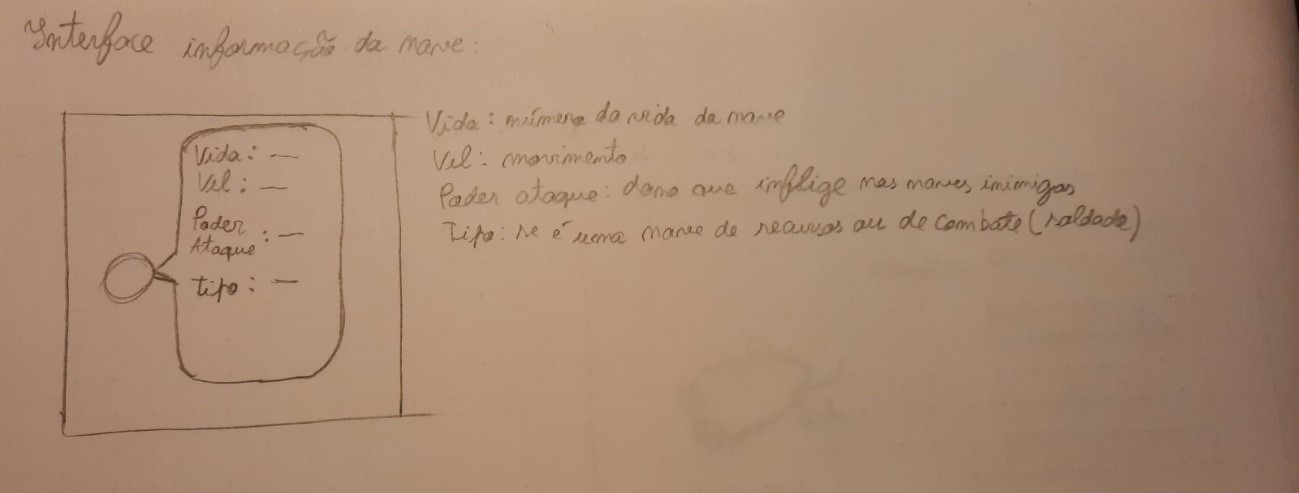 Interface informação da nave:
Vida: —
Vel: —
Poder
Ataque : —
tipo: —
Vida: número da vida da nave
Vel: movimento
Poder ataque: dano que inflige nas naves inimigas
Tipo: se é uma nave de recursos ou de combate (soldado)